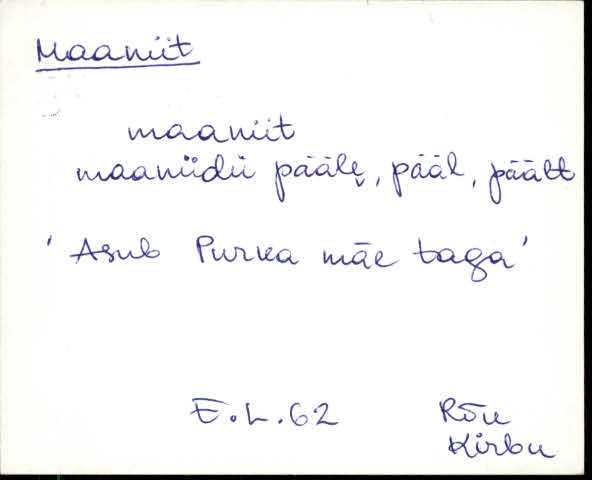 Maaniit
maaniit
maaniidü pääle̬, pääl, päält
'Asub Purka mäe taga'
E.L.62 Rõu
Kirbu